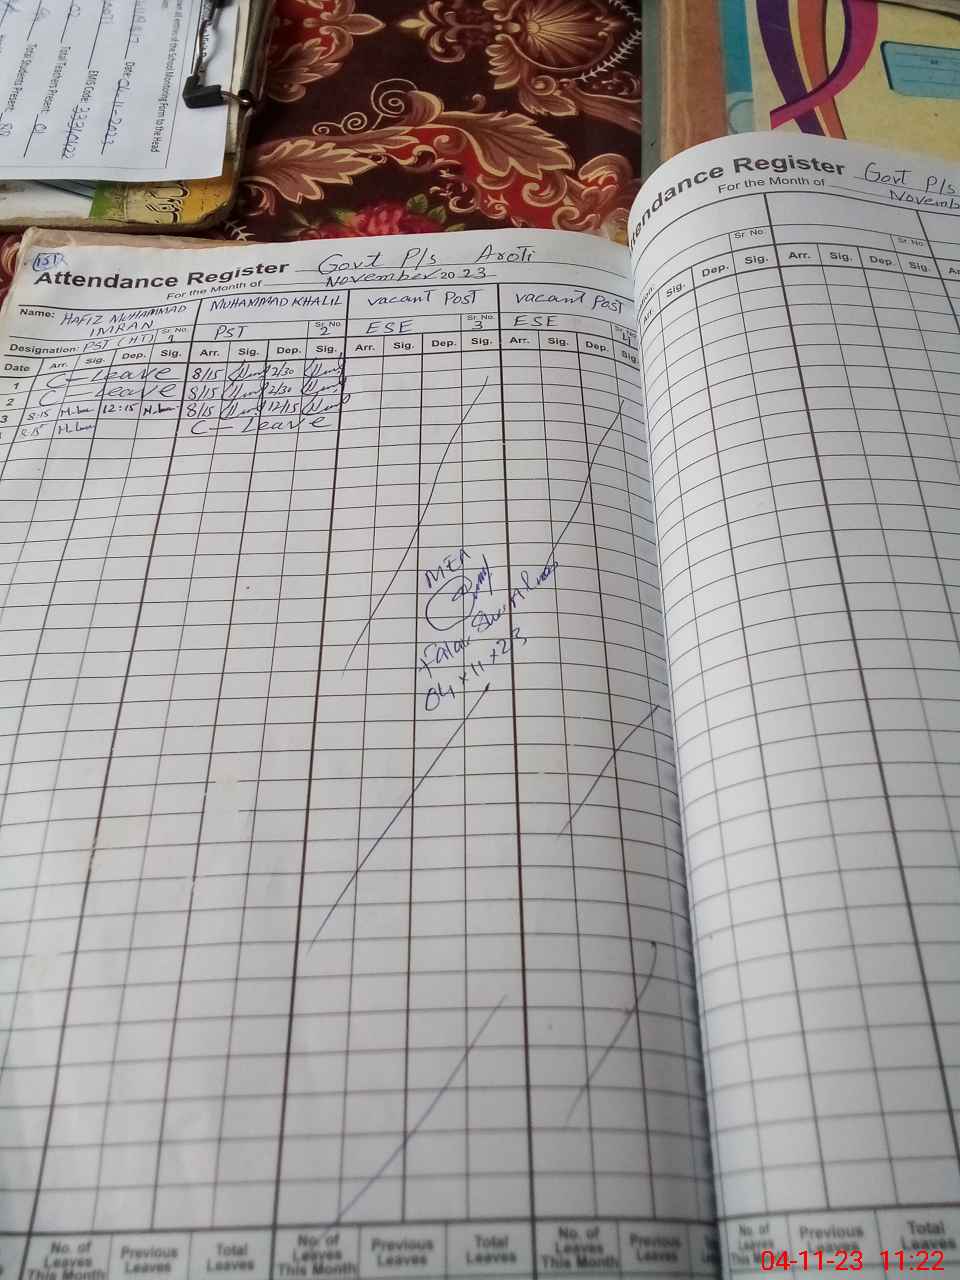 of the School Monitoring Form to the Head
Date: 04-11-2023
EMIS Code: 37310122
Total Teachers Present: 01
Total Students Present:
1st
Attendance Register Govt P/s Aroti
For the Month of November 2023
Name: HAFIZ MUHAMMAD IMRAN Sr. No. 1 MUHAMMAD KHALIL Sr. No. 2 vacant Post Sr. No. 3 vacant Post
Designation: PST (HT) PST ESE ESE
Date Arr. Sig. Dep. Sig. Arr. Sig. Dep. Sig. Arr. Sig. Dep. Sig. Arr. Sig. Dep. Sig.
1 C-Leave 8/15 2/30
2 C-Leave 8/15 2/30
3 8:15 12:15 8/15 12/15
8:15 C-Leave
MEA
04 x 11 x 23
No. of Leaves This Month Previous Leaves Total Leaves No. of Leaves This Month Previous Leaves Total Leaves No. of Leaves This Month Previous Leaves
tendance Register Govt P/s
For the Month of Novemb
Sr. No. Sr. No.
Sig. Dep. Sig. Arr. Sig. Dep. Sig.
No. of Leaves This Month Previous Leaves Total Leaves
04-11-23 11:22